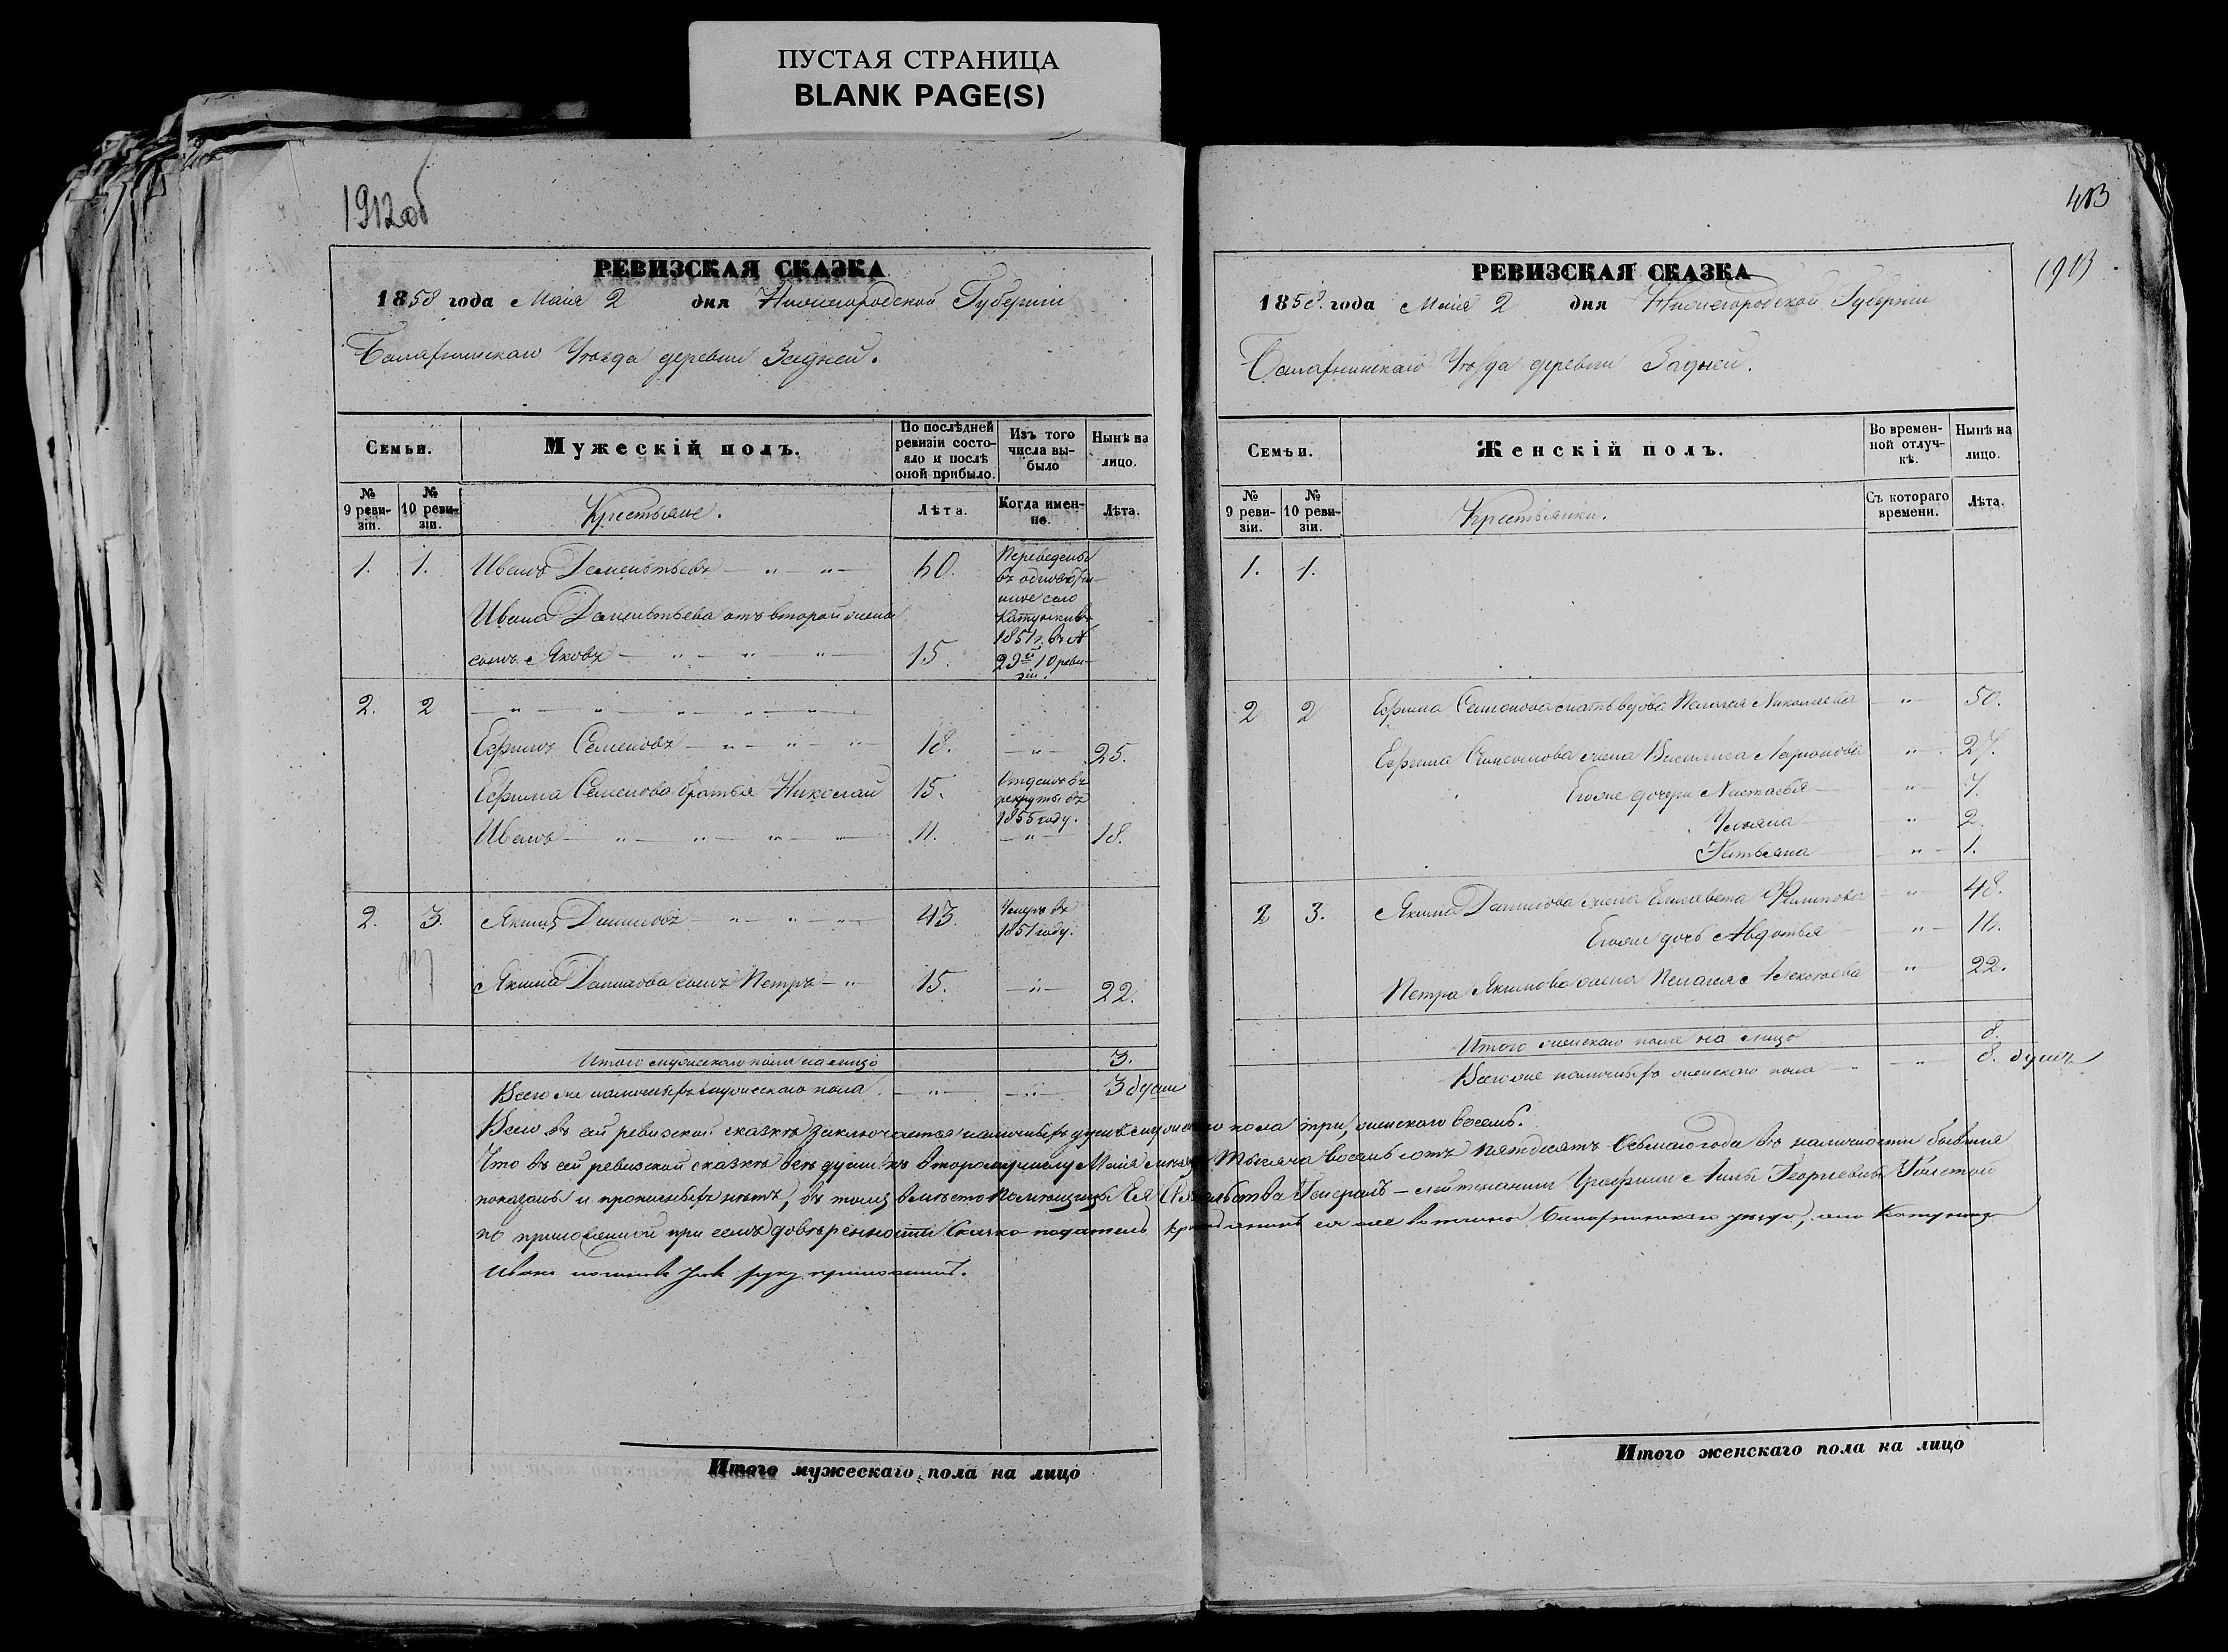 ПУСТАЯ СТРАНИЦА
BLANK PAGE(S)
1912об
РЕВИЗСКАЯ СКАЗКА
1858 года Маія 2 дня Нижегородской Губерніи
Балахнинскаго Уѣзда деревни Задней.
Семьи.
Мужескій полъ.
По послѣдней ревизіи состояло и послѣ оной прибыло.
Изъ того числа выбыло
Нынѣ на лицо.
№ 9 ревизіи.
№ 10 ревизіи.
Крестьяне.
Лѣта.
Когда именно.
Лѣта.
1. 1. Иванъ Дементьевъ — „ — „ — 60. Переведены
въ
Ивана Дементьева отъ второй жены
село
Катунки въ
1851 г. въ №
сынъ Яковъ — „ — „ — „ — 15. 29й 10 реви-
зіи.
2. 2 — „ — „ — „ — „ — „ —
Ефимъ Семеновъ — „ — „ — „ — 18. — „ — 25.
Ефима Семенова братья Николай 15. Отданъ въ
рекруты въ
1855 году.
Иванъ — „ — „ — „ — „ — 11. — „ — 18.
2. 3. Якимъ Даниловъ — „ — „ — „ — 43. Умеръ въ
1851 году.
Якима Данилова сынъ Петръ — „ 15. — „ — 22.
Итого мужескаго пола на лицо 3.
Всего же наличныхъ мужескаго пола — „ — — „ — 3 души
403
1913
РЕВИЗСКАЯ СКАЗКА
1858. года Маія 2 дня Нижегородской Губерніи
Балахнинскаго Уѣзда деревни Задней.
Семьи.
Женскій полъ.
Во временной отлучкѣ.
Нынѣ на лицо.
№ 9 ревизіи.
№ 10 ревизіи.
Крестьянки.
Съ котораго времени.
Лѣта.
1. 1.
2 2 Ефима Семенова мать вдова Пелагея Николаева — „ — 50.
Ефима Семенова жена Василиса Ларионова — „ — 27.
Его же дочери Настасья — „ — 7.
Ульяна — „ — 2.
Татьяна — „ — 1.
2 3. Якима Данилова жена Елисавета Филипова — „ — 48.
Его же дочь Авдотья — „ — 16.
Петра Якимова жена Пелагея Алексеева — „ — 22.
Итого женскаго пола на лицо 8.
Всего же наличныхъ женскаго пола — „ — 8. душъ
Всего въ сей ревизской сказкѣ заключается наличныхъ душъ мужескаго пола три, женскаго восемь.
Что въ сей ревизской сказкѣ всѣ души къ второму числу Маія мѣсяца тысяча восемьсотъ пятдесятъ осьмаго года въ наличности бывшія
показаны и прописныхъ нѣтъ, въ томъ вмѣсто помѣщицы Ея Сіятельства Генералъ-лейтенантши Графини Анны Георгіевны Толстой
по приложенной при семъ довѣренности Сказко-податель крестьянинъ ея же вотчины Балахнинскаго уѣзда, села Катунокъ
Иванъ руку приложилъ.
Итого мужескаго пола на лицо
Итого женскаго пола на лицо